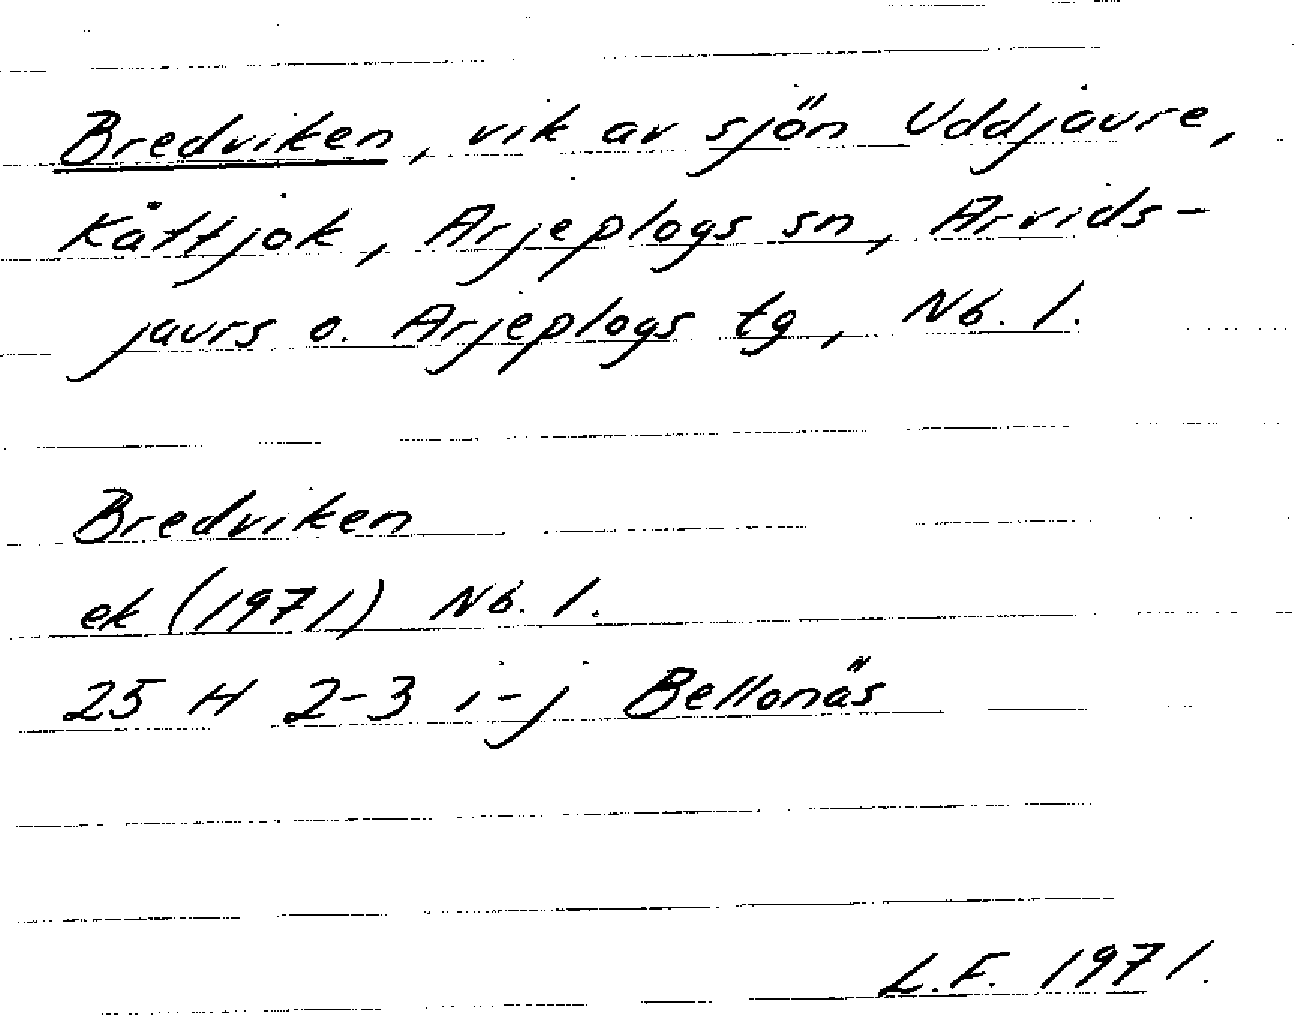 Bredviken, vik av sjön Uddjaure,
Kåttjok, Arjeplogs sn, Arvids-
jaurs o. Arjeplogs tg, Nb. l.
Bredviken
ek (1971) Nb. l.
25 H 2-3 i-j Bellonäs
L.F. 1971.